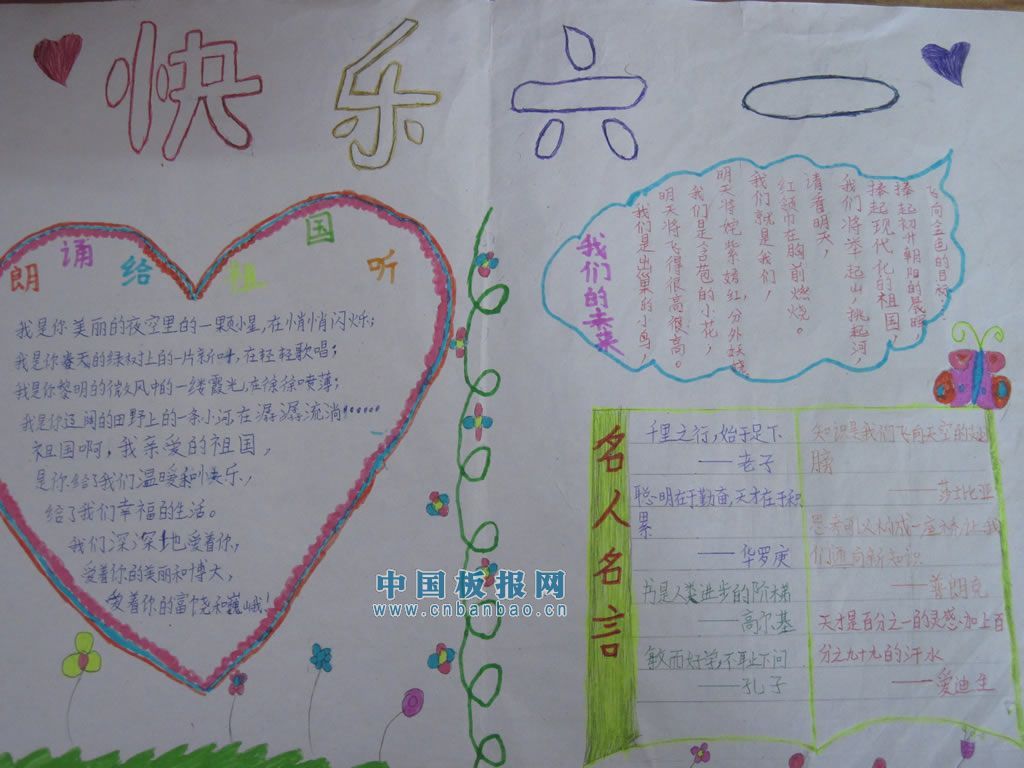 快乐六一
朗诵给祖国听
我是你美丽的夜空里的一颗小星,在悄悄闪烁;
我是你春天的绿树上的一片新叶,在轻轻歌唱;
我是你黎明的微风中的一缕霞光,在徐徐喷薄;
我是你辽阔的田野上的一条小河,在潺潺流淌!……
祖国啊,我亲爱的祖国,
是你给了我们温暖和快乐,
给了我们幸福的生活。
我们深深地爱着你,
爱着你的美丽和博大,
爱着你的富饶和巍峨!
飞向金色的目标,
捧起初升朝阳的晨晖,
捧起现代化的祖国,
我们将举起山,挑起河
请看明天,
红领巾在胸前燃烧。
我们就是我们,
明天将姹紫嫣红,分外妖娆
我们是含苞的小花,
明天将飞得很高很高。
我们是出巢的小鸟,
我们的未来
名人名言
千里之行,始于足下
——老子
聪明在于勤奋,天才在于积
累
——华罗庚
书是人类进步的阶梯
——高尔基
敏而好学,不耻下问
——孔子
知识是我们飞向天空的翅
膀
——莎士比亚
思考可以构成一座桥,让我
们通向新知识
——普朗克
天才是百分之一的灵感,加上百
分之九十九的汗水
——爱迪生
中国板报网
www.cnbanbao.cn